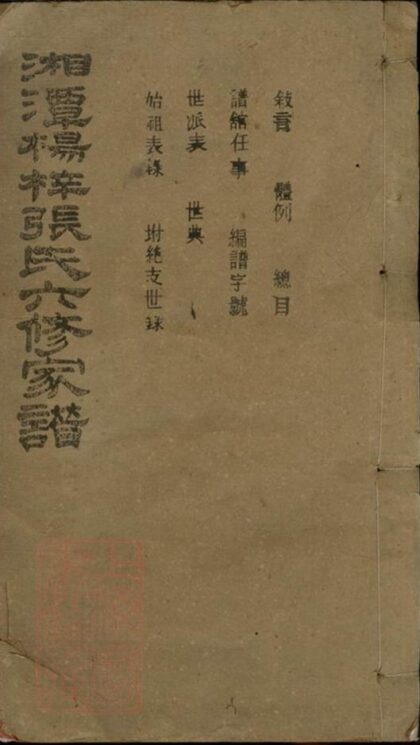 敘言 體例 總目
譜館任事 編譜字號
世派表 世典
始祖表錄 坿絶支世録
湘潭楊梓張氏六修家譜